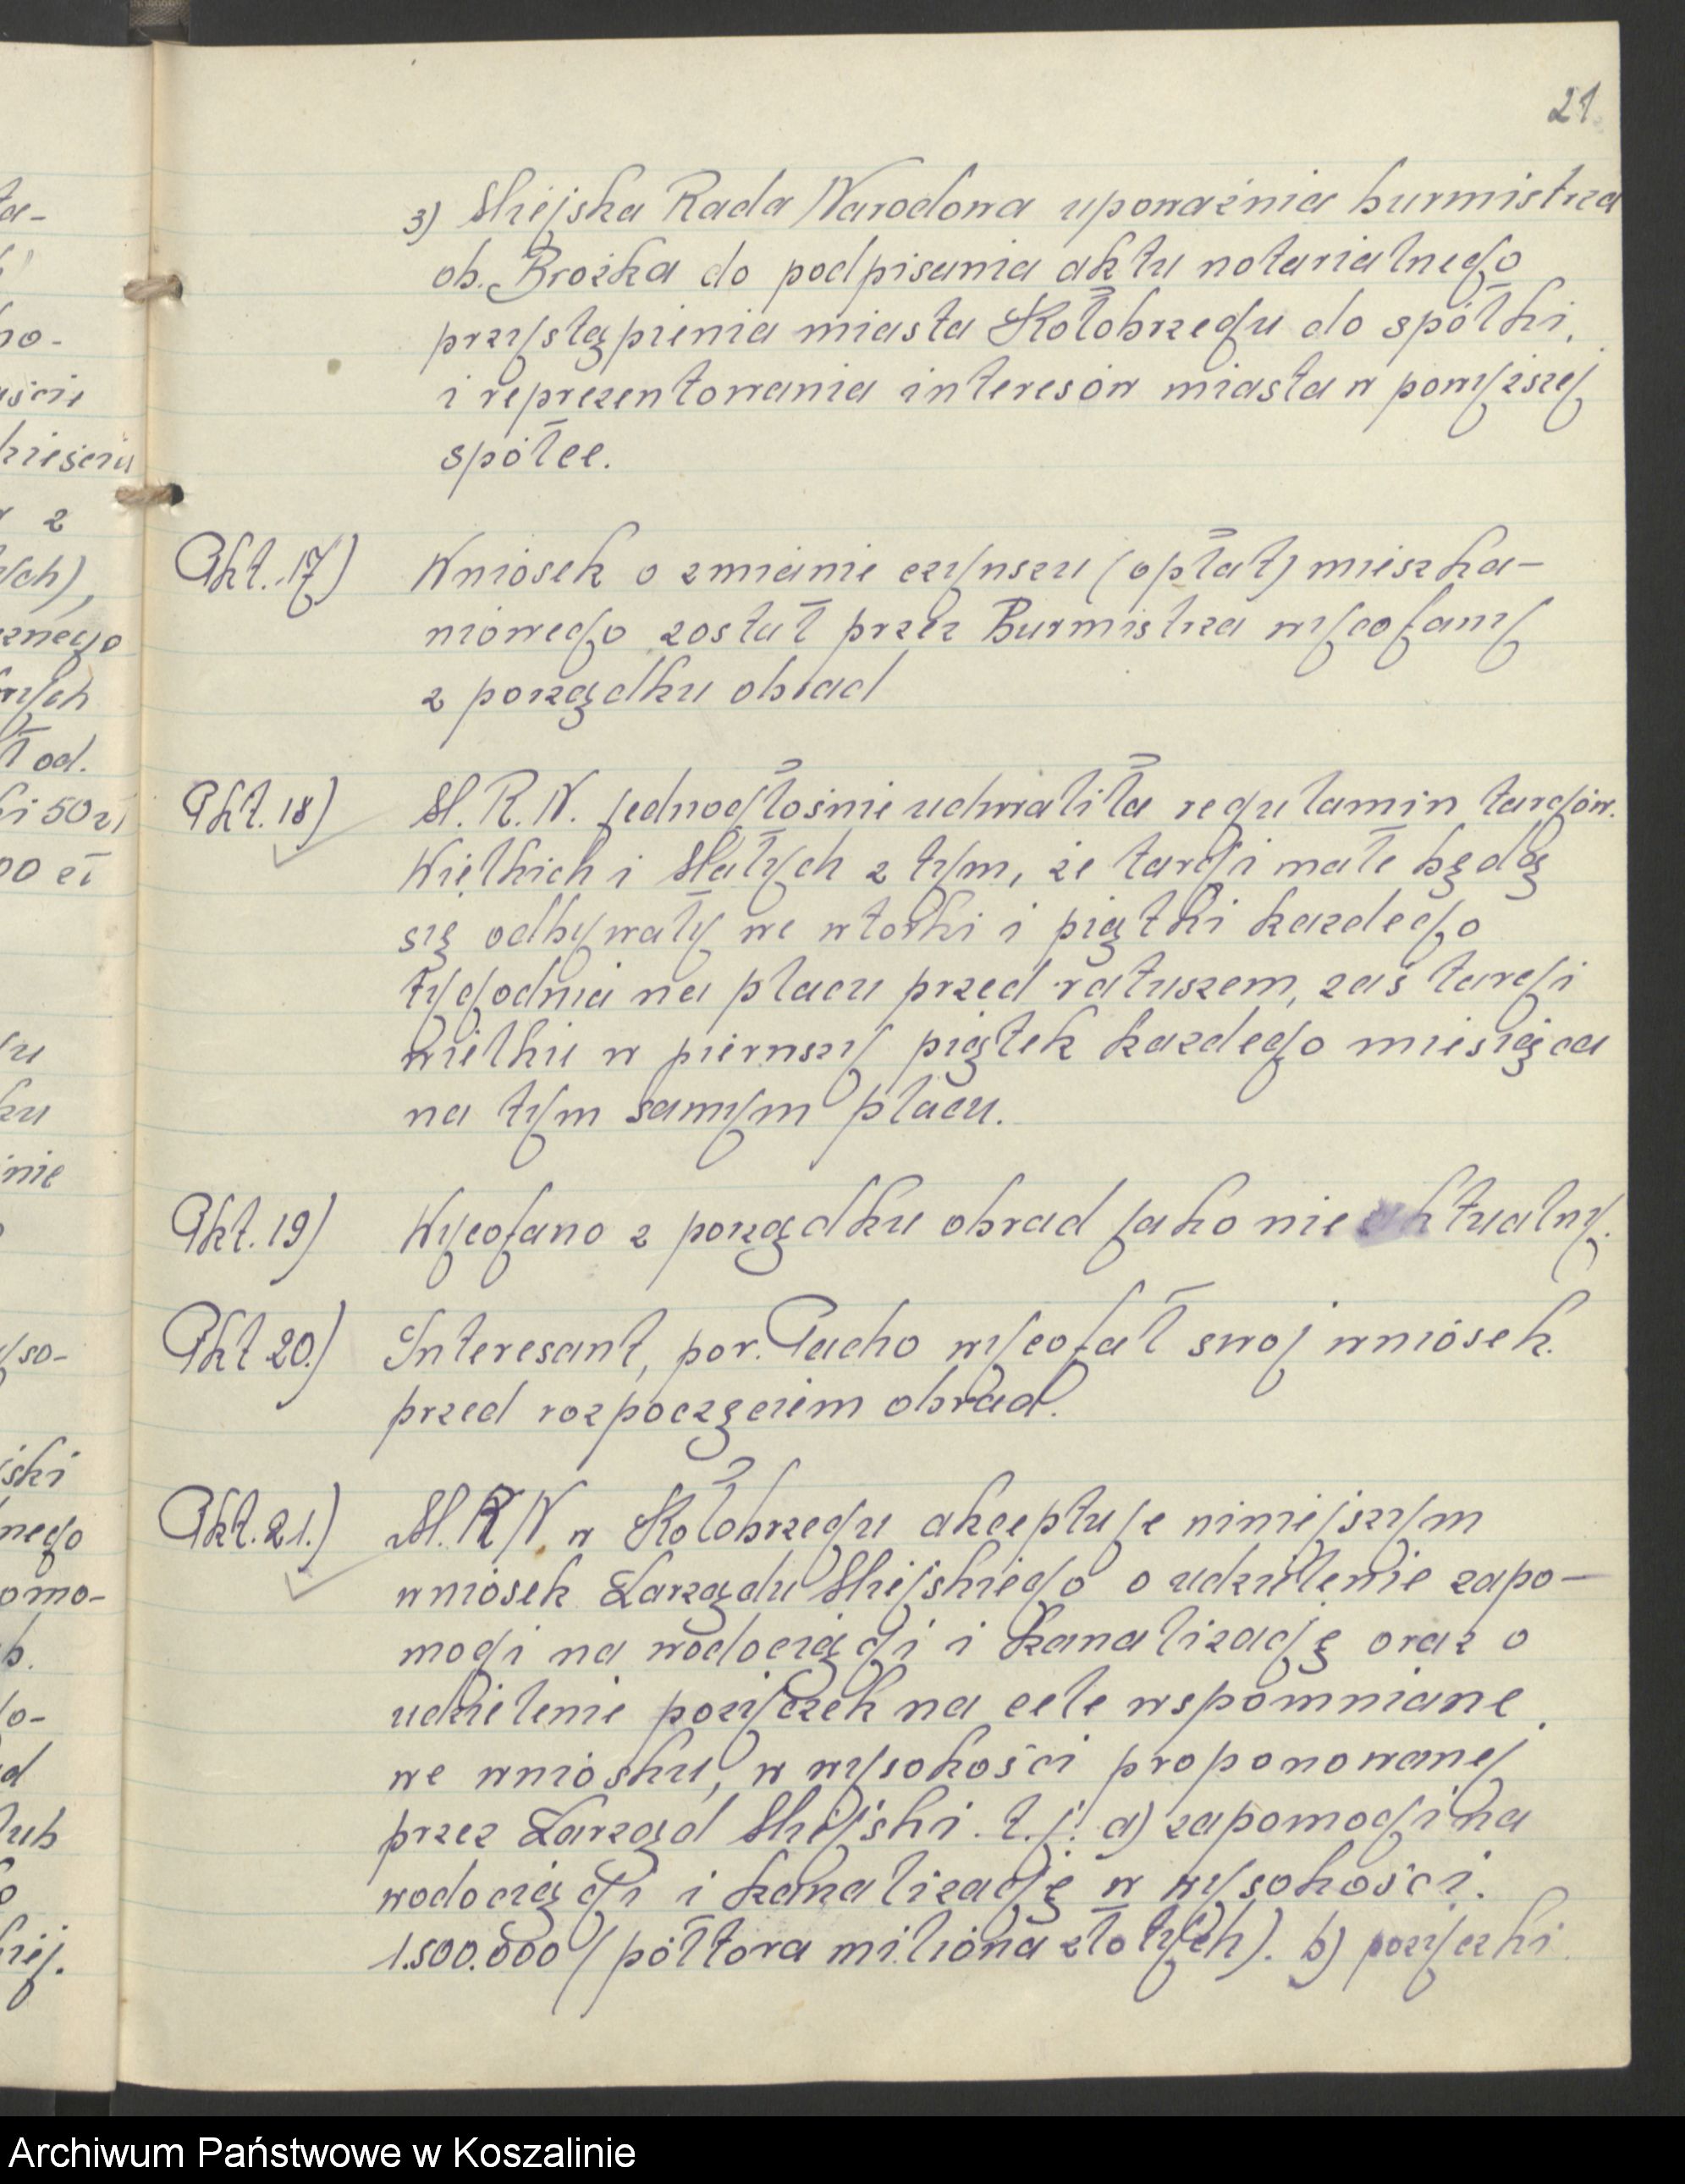 21
3) Miejska Rada Narodowa upoważnia burmistrza
ob. Brożka do podpisania aktu notarialnego
przystąpienia miasta Kołobrzegu do spółki,
i reprezentowania interesów miasta w powyższej
spółce.
Pkt. 17) Wniosek o zmianie czynszu (opłat) mieszka-
niowego został przez Burmistrza wycofany
z porządku obrad
Pkt. 18) M. R. N. jednogłośnie uchwaliła regulamin targów.
Wielkich i Małych z tym, że targi małe będą
się odbywały we wtorki i piątki kazdego
tygodnia na placu przed ratuszem, zaś targi
wielkie w pierwszy piątek kazdego miesiąca
na tym samym placu.
Pkt. 19) Wycofano z porządku obrad jako nieaktualny.
Pkt 20.) Interesant, por. Pacho wycofał swoj wniosek.
przed rozpoczęciem obrad.
Pkt. 21.) M. R. N. w Kołobrzegu akceptuje niniejszym
wniosek Zarządu Miejskiego o udzielenie zapo-
mogi na wodociągi i kanalizację oraz o
udzielenie pożyczek na cele wspomniane
we wniosku, w wysokości proponowanej
przez Zarząd Miejski. t. j. a) zapomogi na
wodociągi i kanalizację w wysokości.
1.500.000 (półtora miliona złotych). b) pożyczki
Archiwum Państwowe w Koszalinie